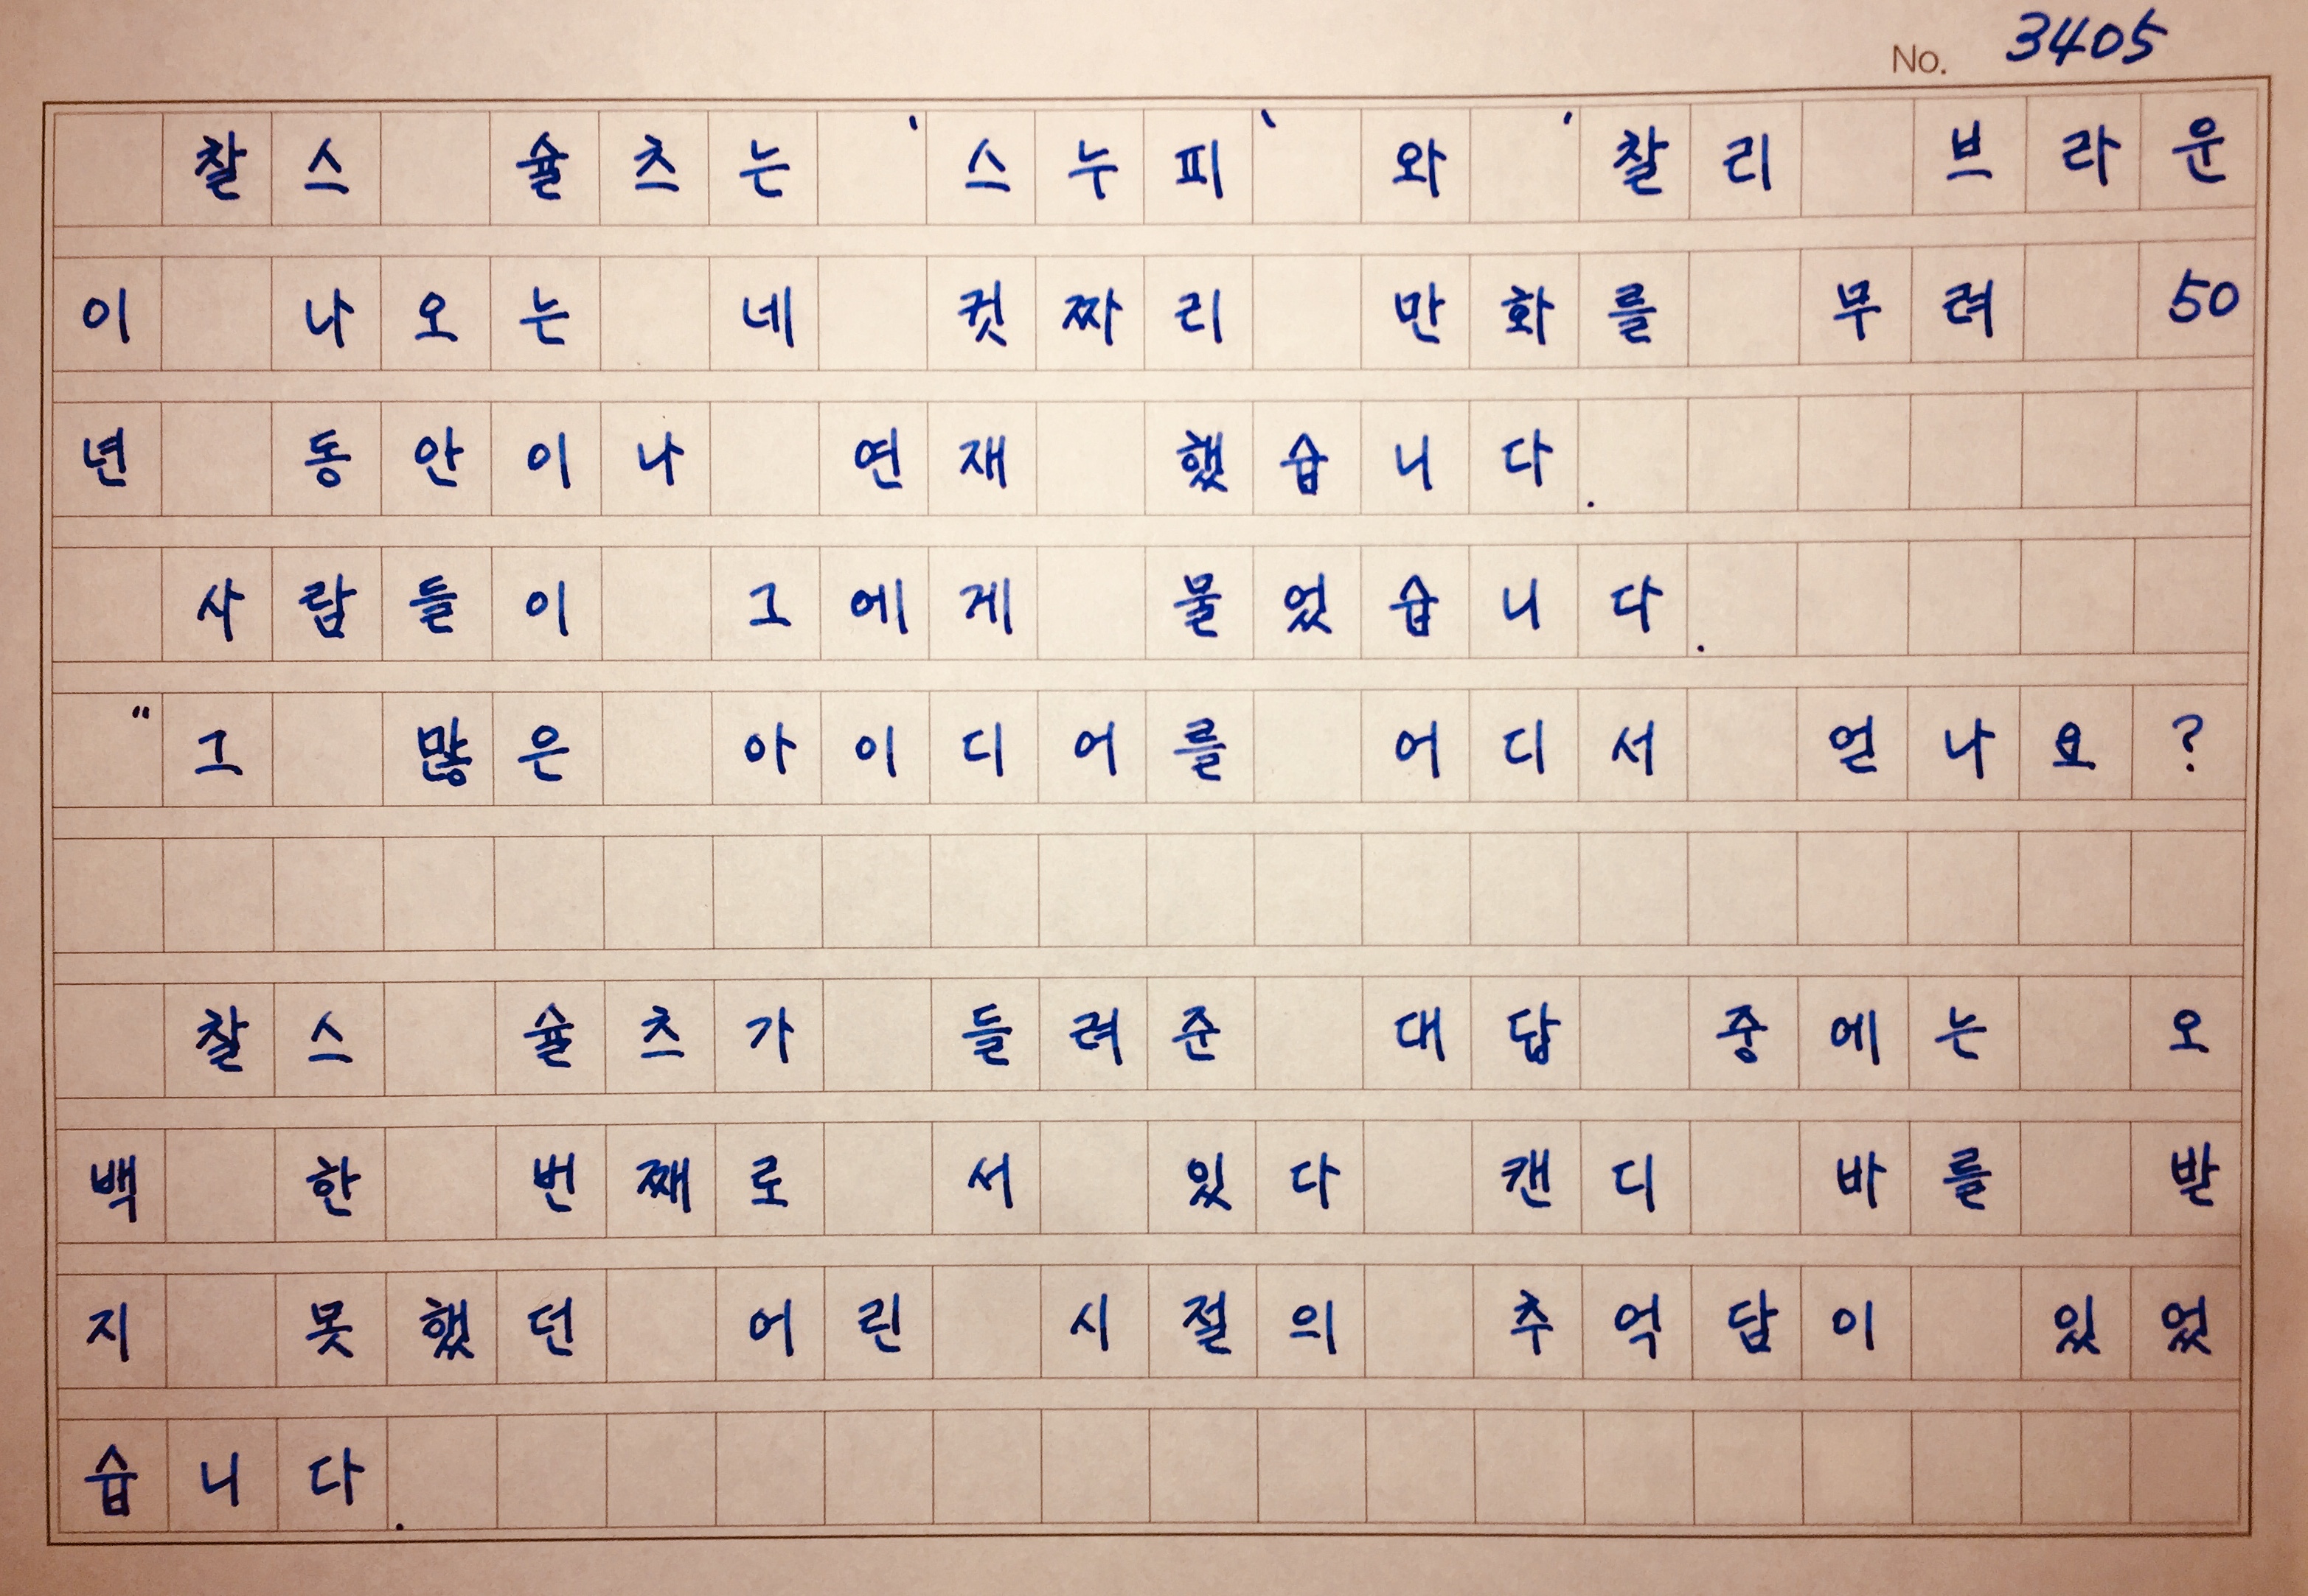 No. 3405
찰스 슐츠는 '스누피` 와 '찰리 브라운
이 나오는 네 컷짜리 만화를 무려 50
년 동안이나 연재 했습니다.
사람들이 그에게 물었습니다.
"그 많은 아이디어를 어디서 얻나요?
찰스 슐츠가 들려준 대답 중에는 오
백 한 번째로 서 있다 캔디 바를 받
지 못했던 어린 시절의 추억답이 있었
습니다.